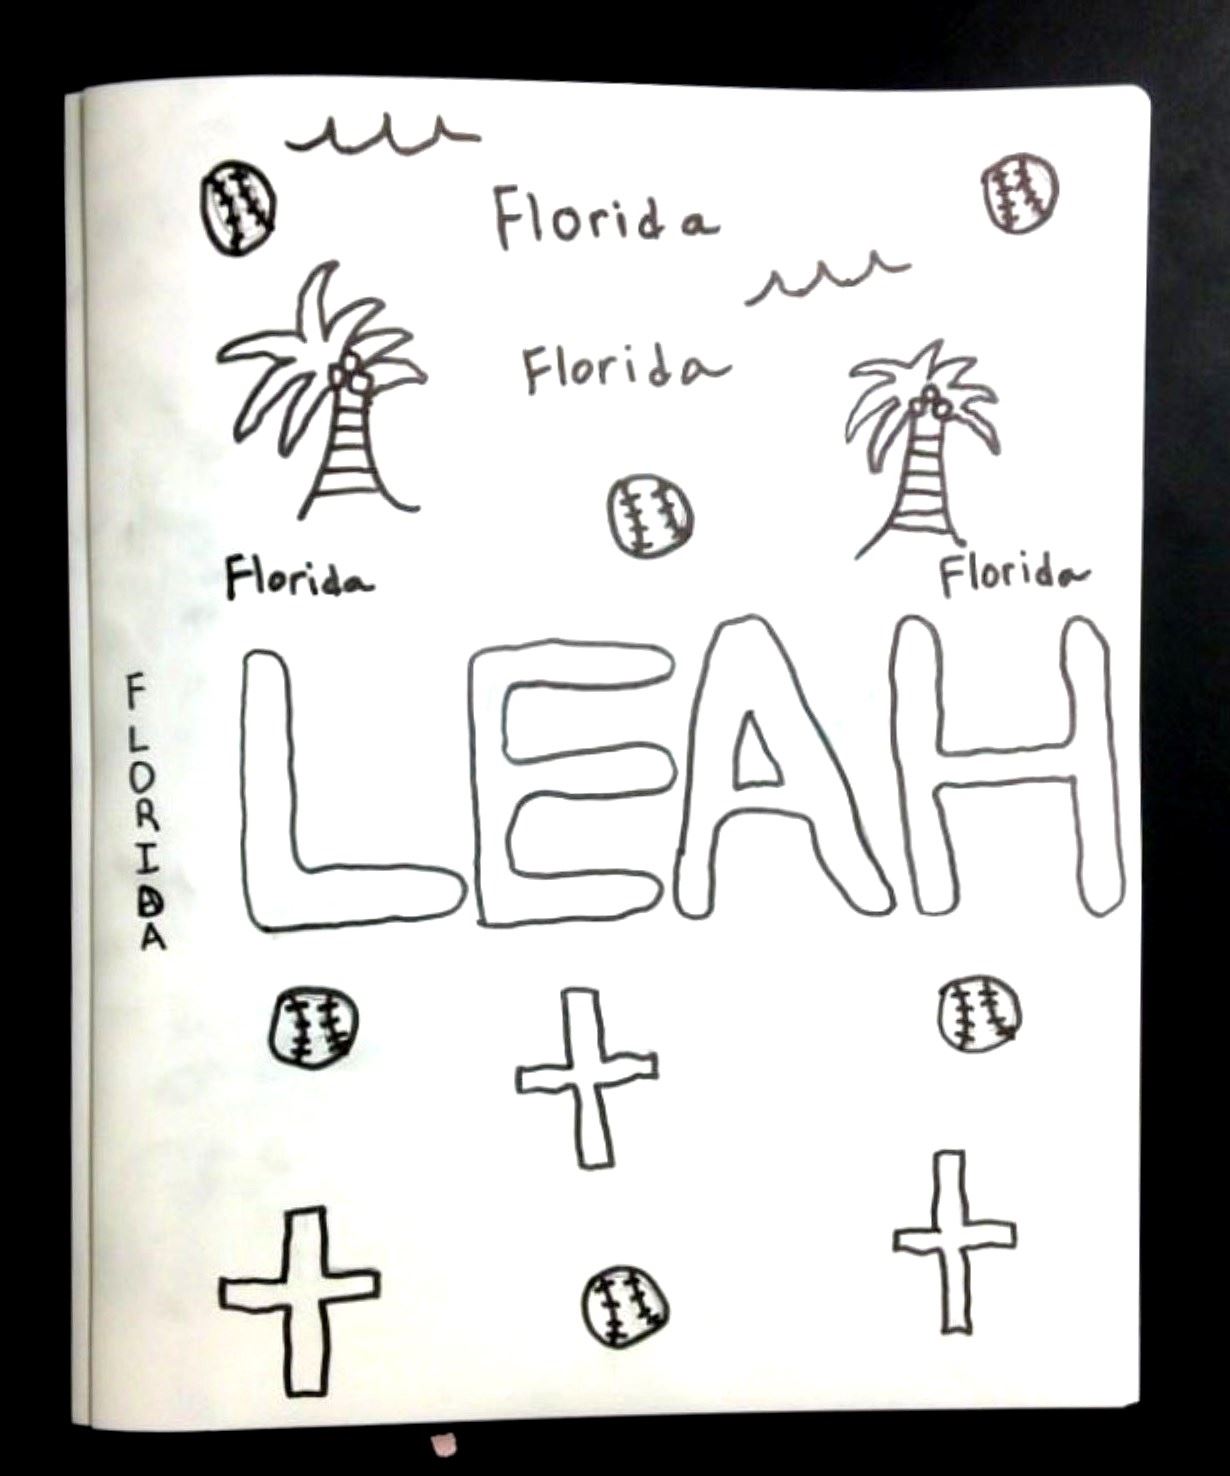 Florida
Florida
Florida
Florida
LEAH
FLORIDA